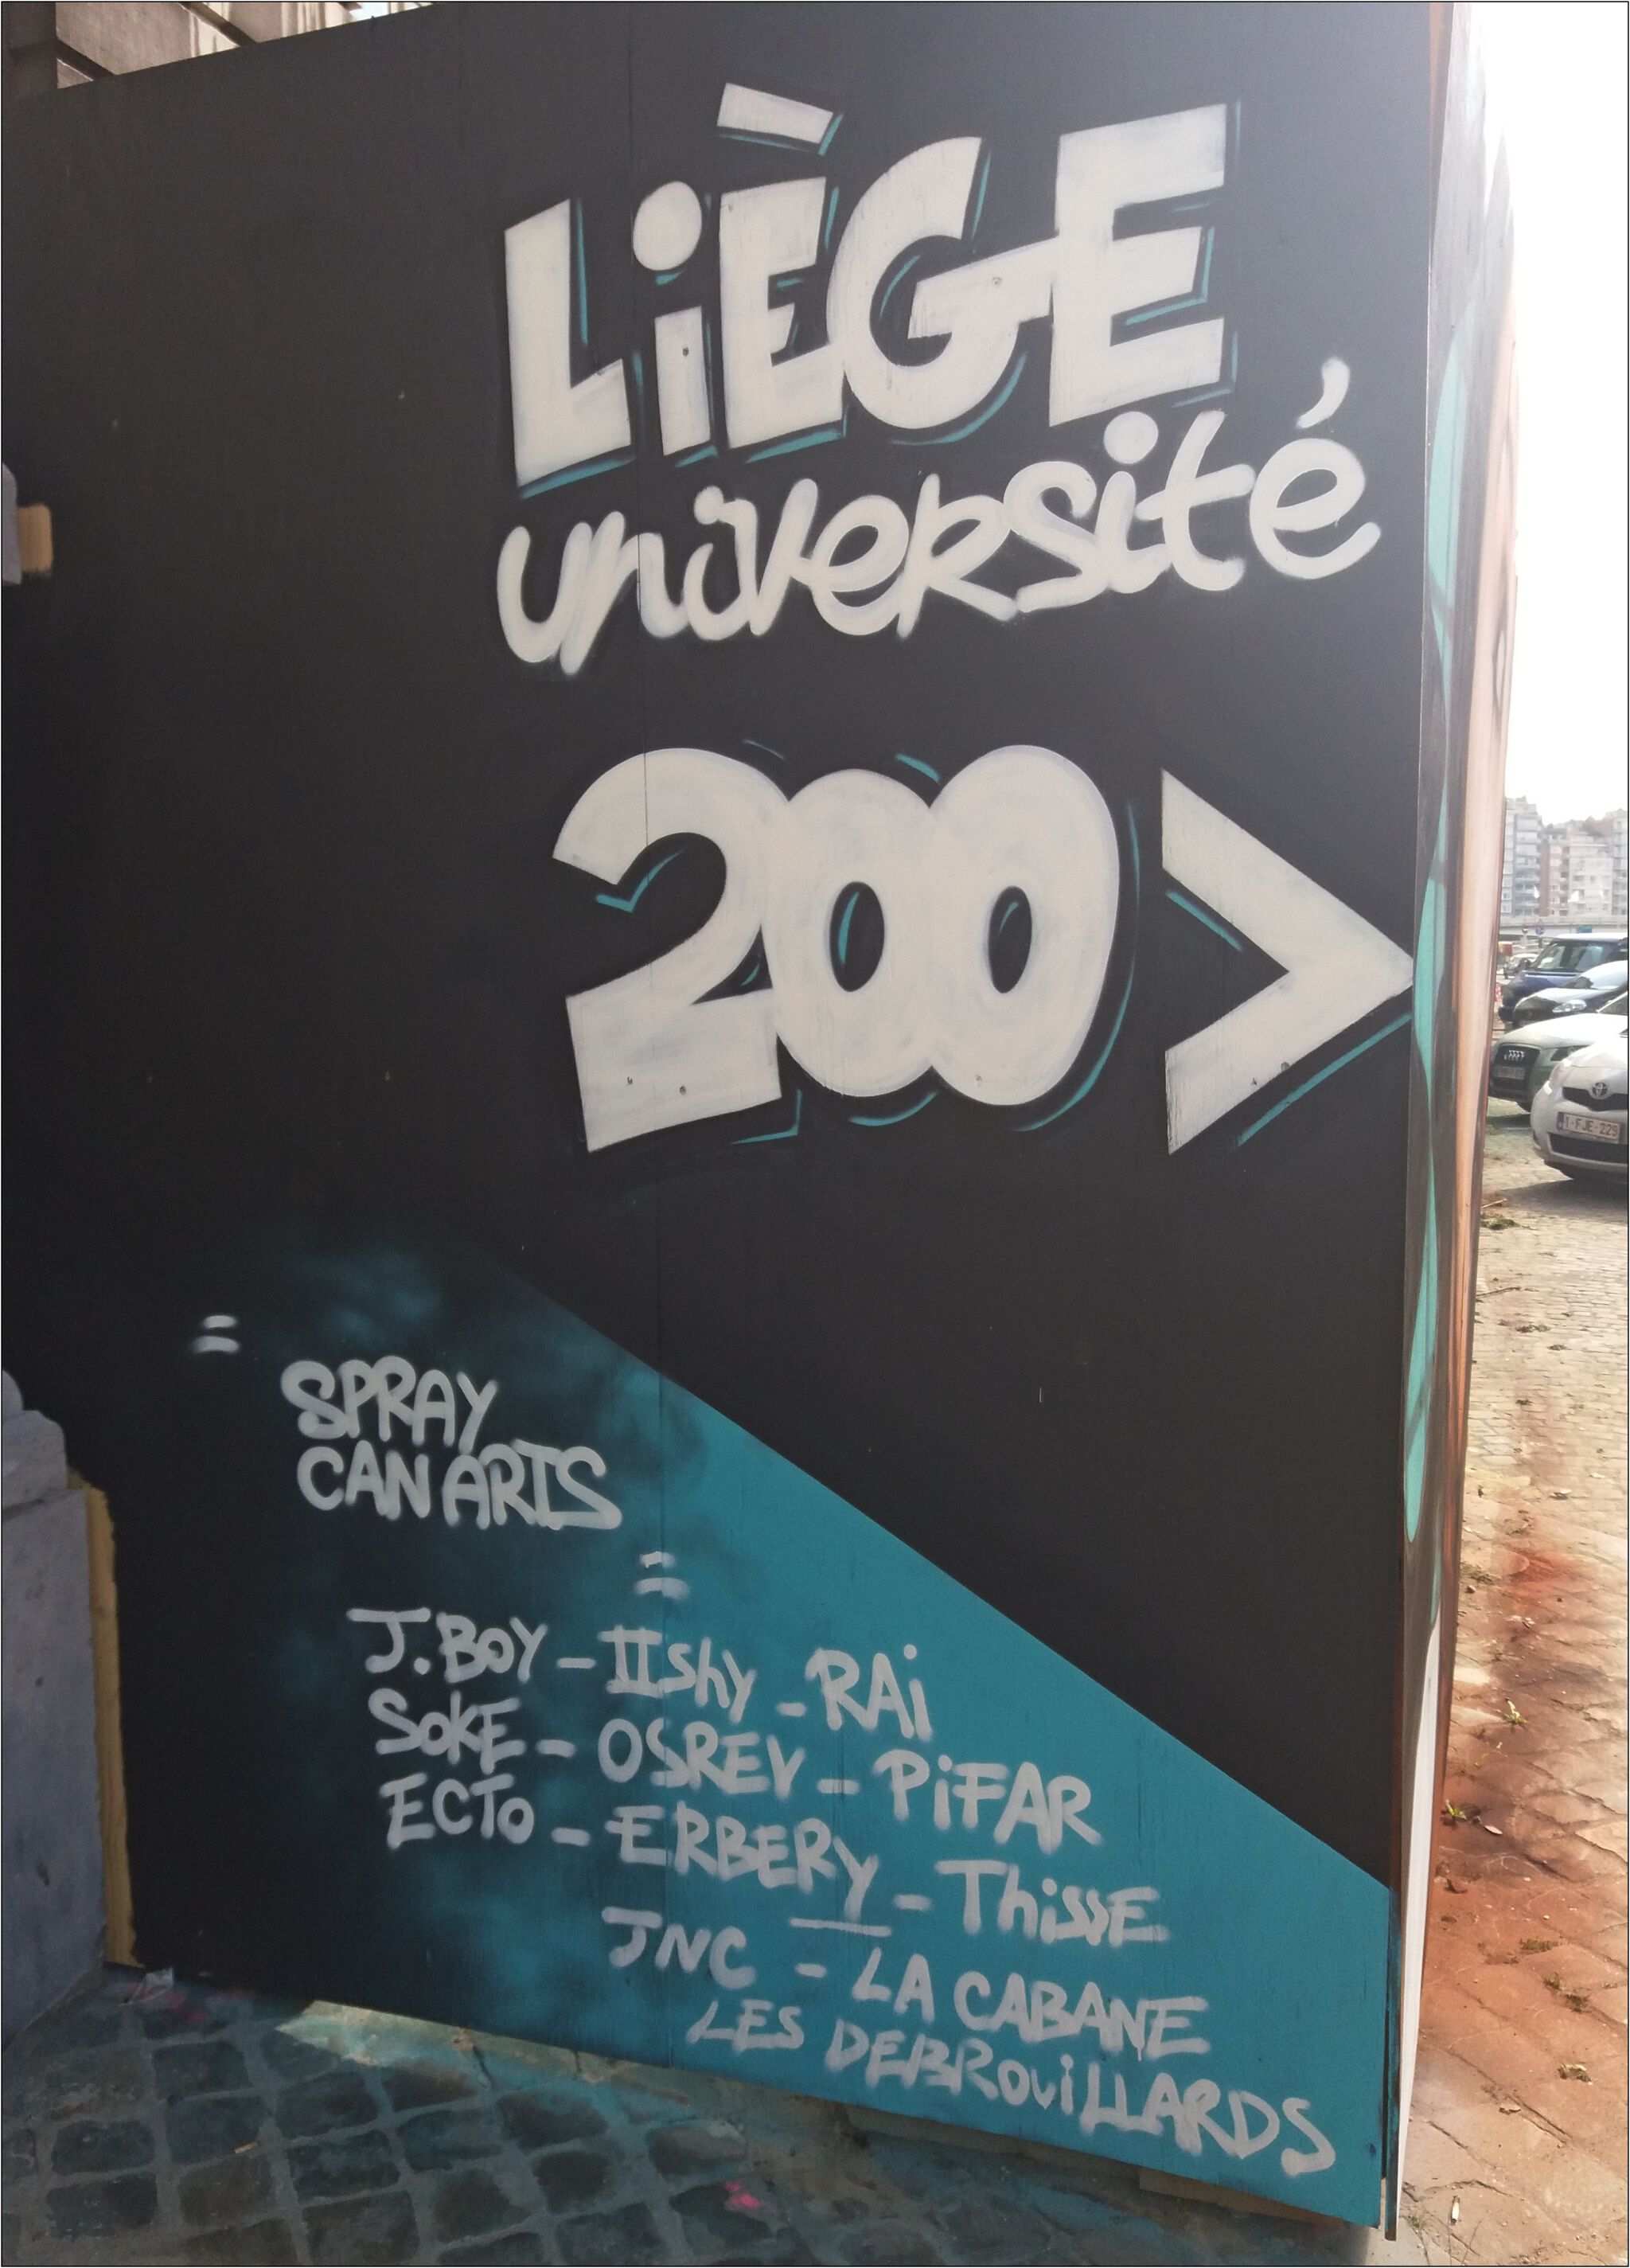 LiÈGE
université
200 >
=
SPRAY
CAN ARTS
=
J.BOY - IIshy - RAi
SOKE - OSREV - PiFAR
ECTO - ERBERY - ThissE
JNC - LA CABANE
LES DEBROUiLLARDS
1-FJE-229